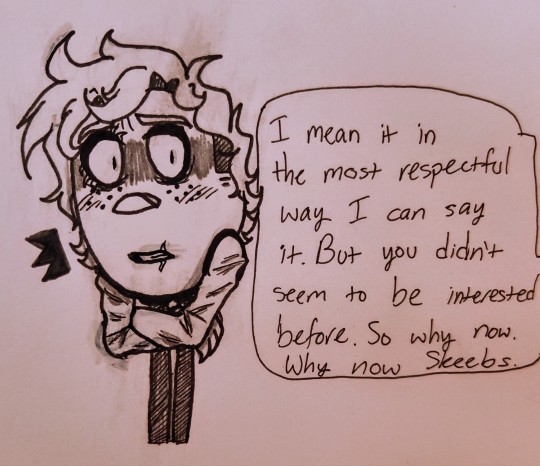 I mean it in
the most respectful
way I can say
it. But you didn't
seem to be interested
before. So why now.
Why now Skeebs.